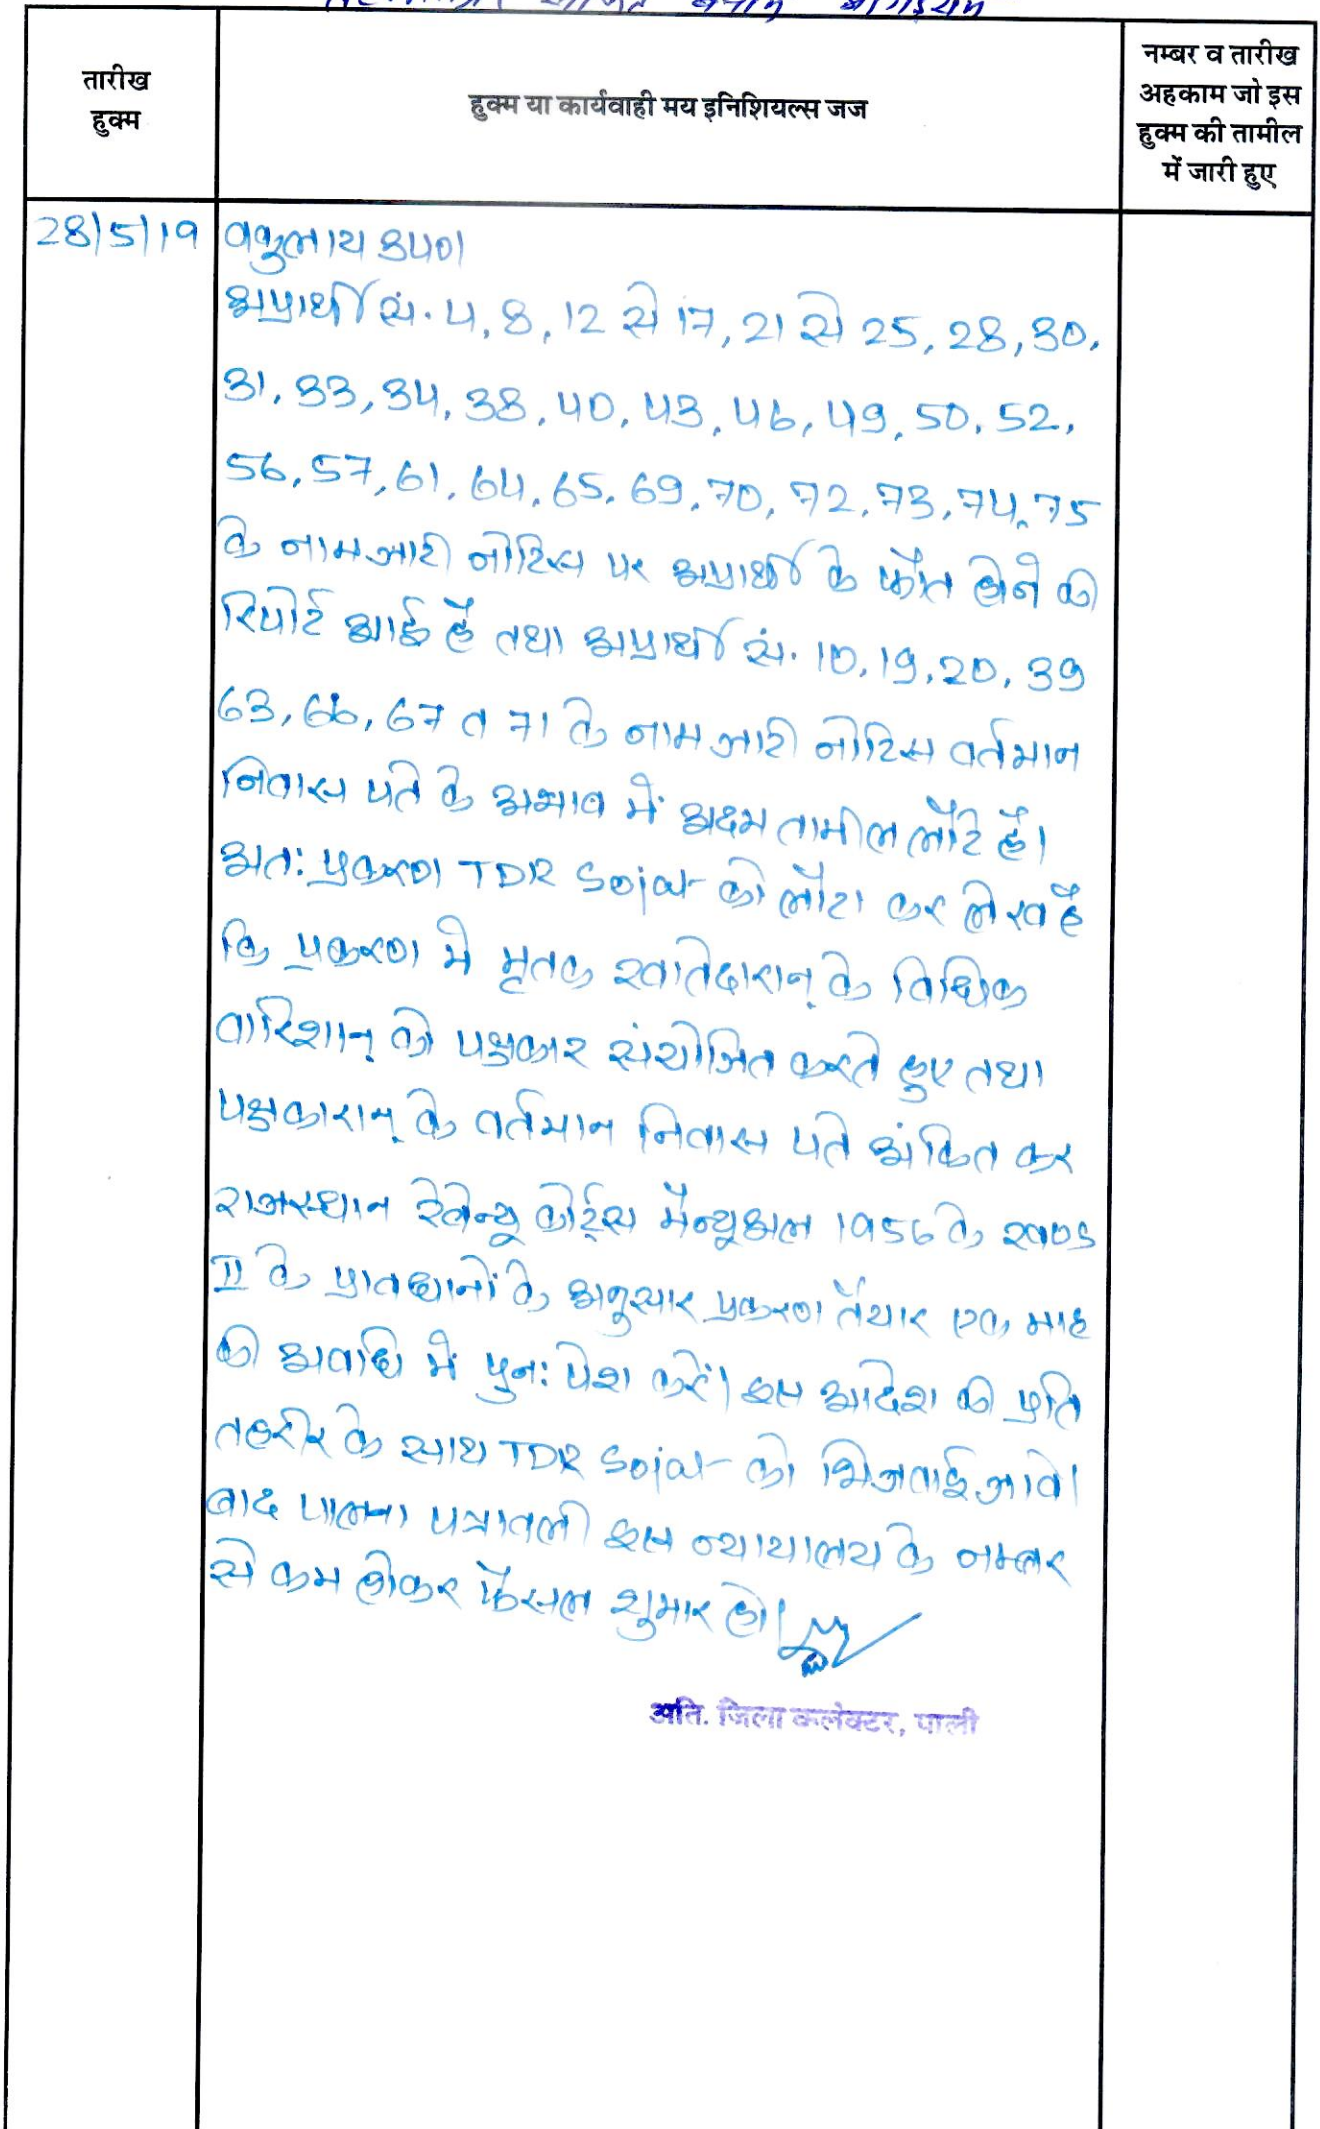 बनाम
तारीख
हुक्म
हुक्म या कार्यवाही मय इनिशियल्स जज
नम्बर व तारीख
अहकाम जो इस
हुक्म की तामील
में जारी हुए
28/5/19 वकुलाय उपण
अप्रार्थी सं. 4, 8, 12 से 17, 21 से 25, 28, 30,
31, 33, 34, 38, 40, 43, 46, 49, 50, 52,
56, 57, 61, 64, 65, 69, 70, 72, 73, 74, 75
के नाम जारी नोटिस पर अप्रार्थी के फौत होने की
रिपोर्ट आई है तथा अप्रार्थी सं. 10, 19, 20, 39
63, 66, 67 व 71 के नाम जारी नोटिस वर्तमान
निवास पते के अभाव में अदम तामील लौटे है।
अतः प्रकरण TDR Sojat को लौटा कर लेख है
कि प्रकरण मे मृतक खातेदारान् के विधिक
वारिशान् को पक्षकार संयोजित करते हुए तथा
पक्षकारान् के वर्तमान निवास पते अंकित कर
राजस्थान रेवेन्यू कोर्ट्स मैन्यूअल 1956 के खण्ड
II के प्रावधानों के अनुसार प्रकरण तैयार एक माह
की अवधि में पुनः पेश करें। इस आदेश की प्रति
तहरीर के साथ TDR Sojat को भिजवाई जावे।
बाद पालना पत्रावली इस न्यायालय के नम्बर
से कम होकर फैसल शुमार हो।
अति. जिला कलेक्टर, पाली